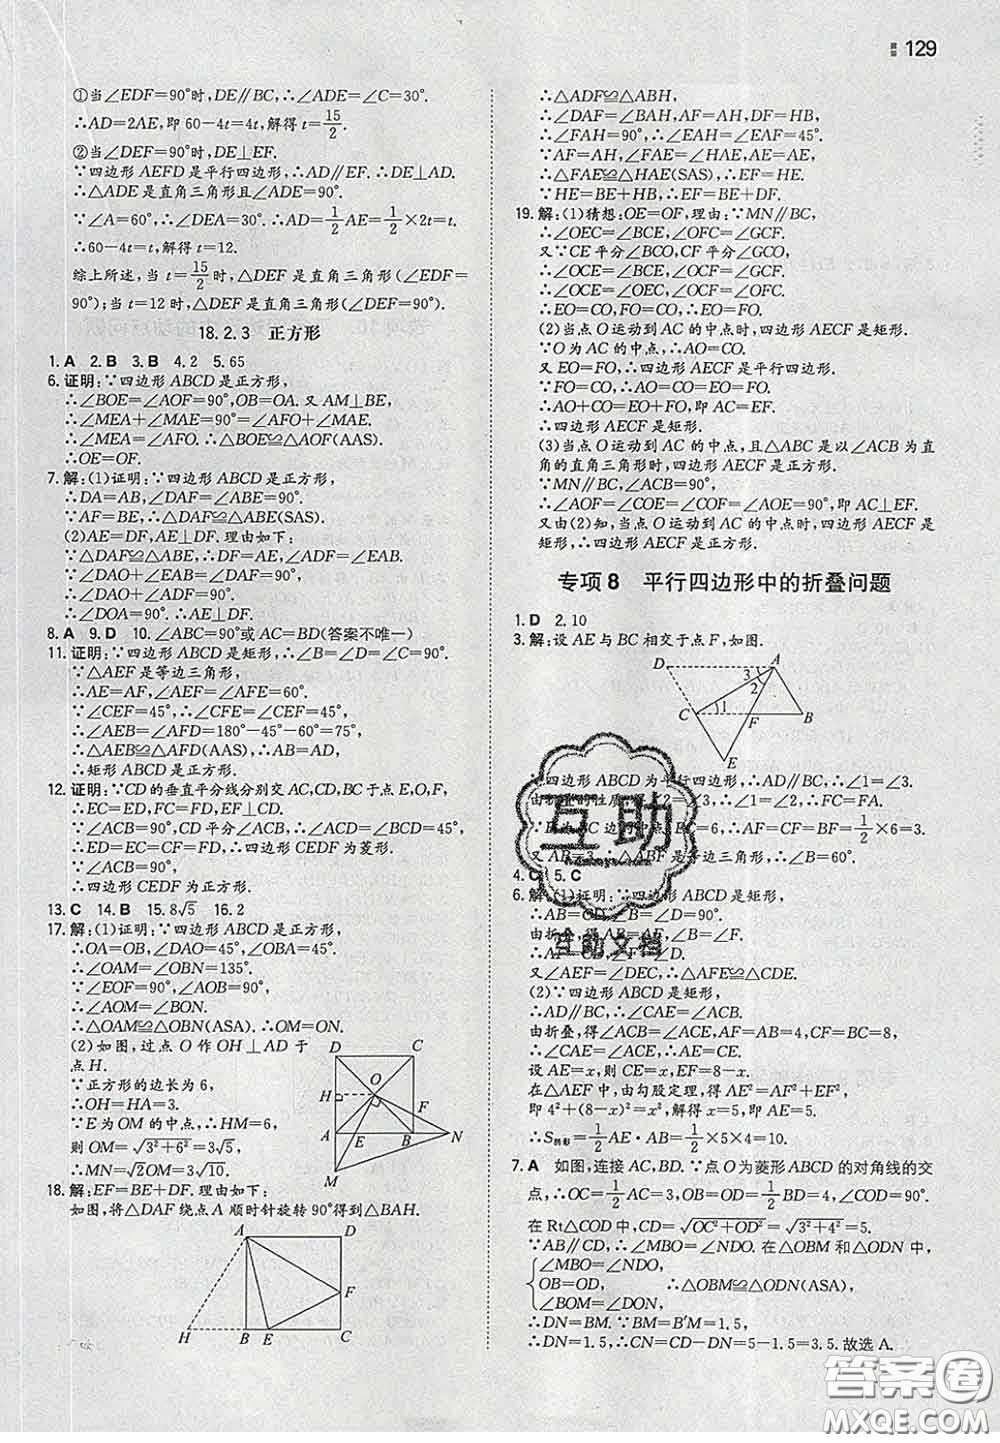 129
①当∠EDF=90°时,DE∥BC,∴∠ADE=∠C=30°.
∴AD=2AE,即 60-4t=4t,解得 t=15/2.
②当∠DEF=90°时,DE⊥EF.
∵四边形 AEFD 是平行四边形,∴AD∥EF.∴DE⊥AD.
∴△ADE 是直角三角形且∠ADE=90°.
∵∠A=60°,∴∠DEA=30°.∴AD=1/2AE=1/2×2t=t.
∴60-4t=t,解得 t=12.
综上所述,当 t=15/2时,△DEF 是直角三角形(∠EDF=
90°);当 t=12 时,△DEF 是直角三角形(∠DEF=90°).
18.2.3 正方形
1.A 2.B 3.B 4.2 5.65
6.证明:∵四边形 ABCD 是正方形,
∴∠BOE=∠AOF=90°,OB=OA.又 AM⊥BE,
∴∠MEA+∠MAE=90°=∠AFO+∠MAE.
∴∠MEA=∠AFO.∴△BOE≌△AOF(AAS).
∴OE=OF.
7.解:(1)证明:∵四边形 ABCD 是正方形,
∴DA=AB,∠DAF=∠ABE=90°.
∵AF=BE,∴△DAF≌△ABE(SAS).
(2)AE=DF,AE⊥DF.理由如下:
∵△DAF≌△ABE,∴DF=AE,∠ADF=∠EAB.
∵∠DAO+∠EAB=∠DAF=90°,
∴∠DAO+∠ADF=90°.
∴∠DOA=90°.∴AE⊥DF.
8.A 9.D 10.∠ABC=90°或 AC=BD(答案不唯一)
11.证明:∵四边形 ABCD 是矩形,∴∠B=∠D=∠C=90°.
∵△AEF 是等边三角形,
∴AE=AF,∠AEF=∠AFE=60°.
∵∠CEF=45°,∴∠CFE=∠CEF=45°,
∴∠AEB=∠AFD=180°-45°-60°=75°,
∴△AEB≌△AFD(AAS),∴AB=AD,
∴矩形 ABCD 是正方形.
12.证明:∵CD 的垂直平分线分别交 AC,CD,BC 于点 E,O,F,
∴EC=ED,FC=FD,EF⊥CD.
∵∠ACB=90°,CD 平分∠ACB,∴∠ACD=∠BCD=45°,
∴ED=EC=CF=FD,∴四边形 CEDF 为菱形.
∵∠ACB=90°,
∴四边形 CEDF 为正方形.
13.C 14.B 15.8√5 16.2
17.解:(1)证明:∵四边形 ABCD 是正方形,
∴OA=OB,∠DAO=45°,∠OBA=45°.
∴∠OAM=∠OBN=135°.
∵∠EOF=90°,∠AOB=90°,
∴∠AOM=∠BON.
∴△OAM≌△OBN(ASA).∴OM=ON.
(2)如图,过点 O 作 OH⊥AD 于
点 H.
∵正方形的边长为 6,
∴OH=HA=3.
∵E 为 OM 的中点,∴HM=6,
则 OM=√3²+6²=3√5,
∴MN=√2OM=3√10.
D C O H F A E B N M
18.解:EF=BE+DF.理由如下:
如图,将△DAF 绕点 A 顺时针旋转 90°得到△BAH.
A D F H B E C
∴△ADF≌△ABH,
∴∠DAF=∠BAH,AF=AH,DF=HB,
∴∠FAH=90°,∴∠EAH=∠EAF=45°.
∵AF=AH,∠FAE=∠HAE,AE=AE,
∴△FAE≌△HAE(SAS),∴EF=HE.
∵HE=BE+HB,∴EF=BE+DF.
19.解:(1)猜想:OE=OF,理由:∵MN∥BC,
∴∠OEC=∠BCE,∠OFC=∠GCF.
又∵CE 平分∠BCO,CF 平分∠GCO,
∴∠OCE=∠BCE,∠OCF=∠GCF.
∴∠OCE=∠OEC,∠OCF=∠OFC.
∴EO=CO,FO=CO,∴EO=FO.
(2)当点 O 运动到 AC 的中点时,四边形 AECF 是矩形.
∵O 为 AC 的中点,∴AO=CO.
又 EO=FO,∴四边形 AECF 是平行四边形.
∵FO=CO,∴AO=CO=EO=FO.
∴AO+CO=EO+FO,即 AC=EF.
∴四边形 AECF 是矩形.
(3)当点 O 运动到 AC 的中点,且△ABC 是以∠ACB 为直
角的直角三角形时,四边形 AECF 是正方形.
∵MN∥BC,∠ACB=90°,
∴∠AOF=∠COE=∠COF=∠AOE=90°,即 AC⊥EF.
又由(2)知,当点 O 运动到 AC 的中点时,四边形 AECF 是
矩形,∴四边形 AECF 是正方形.
专项 8 平行四边形中的折叠问题
1.D 2.10
3.解:设 AE 与 BC 相交于点 F,如图.
D A 3 2 C 1 F B E
∵四边形 ABCD 为平行四边形,∴AD∥BC,∴∠1=∠3.
∠2=∠3,∴∠1=∠2,∴FC=FA.
BC=6,∴AF=CF=BF=1/2×6=3.
又 AB=3,∴△ABF 是等边三角形,∴∠B=60°.
4.C 5.C
6.解:(1)证明:∵四边形 ABCD 是矩形,
∴AB=CD,∠B=∠D=90°.
由折叠,得 AB=AF,∠B=∠F.
∴AF=CD,∠F=∠D.
又∠AEF=∠DEC,∴△AFE≌△CDE.
(2)∵四边形 ABCD 是矩形,
∴AD∥BC,∴∠CAE=∠ACB.
由折叠,得∠ACF=∠ACB,AF=AB=4,CF=BC=8,
∴∠CAE=∠ACF,∴AE=CE.
设 AE=x,则 CE=x,EF=8-x.
在△AEF 中,由勾股定理,得 AE²=AF²+EF²,
即 4²+(8-x)²=x²,解得 x=5,即 AE=5.
∴S阴影=1/2AE·AB=1/2×5×4=10.
7.A 如图,连接 AC,BD.∵点 O 为菱形 ABCD 的对角线的交
点,∴OC=1/2AC=3,OB=OD=1/2BD=4,∠COD=90°.
在 Rt△COD 中,CD=√OC²+OD²=√3²+4²=5.
∵AB∥CD,∴∠MBO=∠NDO.在△OBM 和△ODN 中,
∠MBO=∠NDO,
OB=OD, ∴△OBM≌△ODN(ASA),
∠BOM=∠DON,
∴DN=BM.∵BM=B′M=1.5,
∴DN=1.5,∴CN=CD-DN=5-1.5=3.5.故选 A.
互助
互助文档
答案圈
MXQE.COM